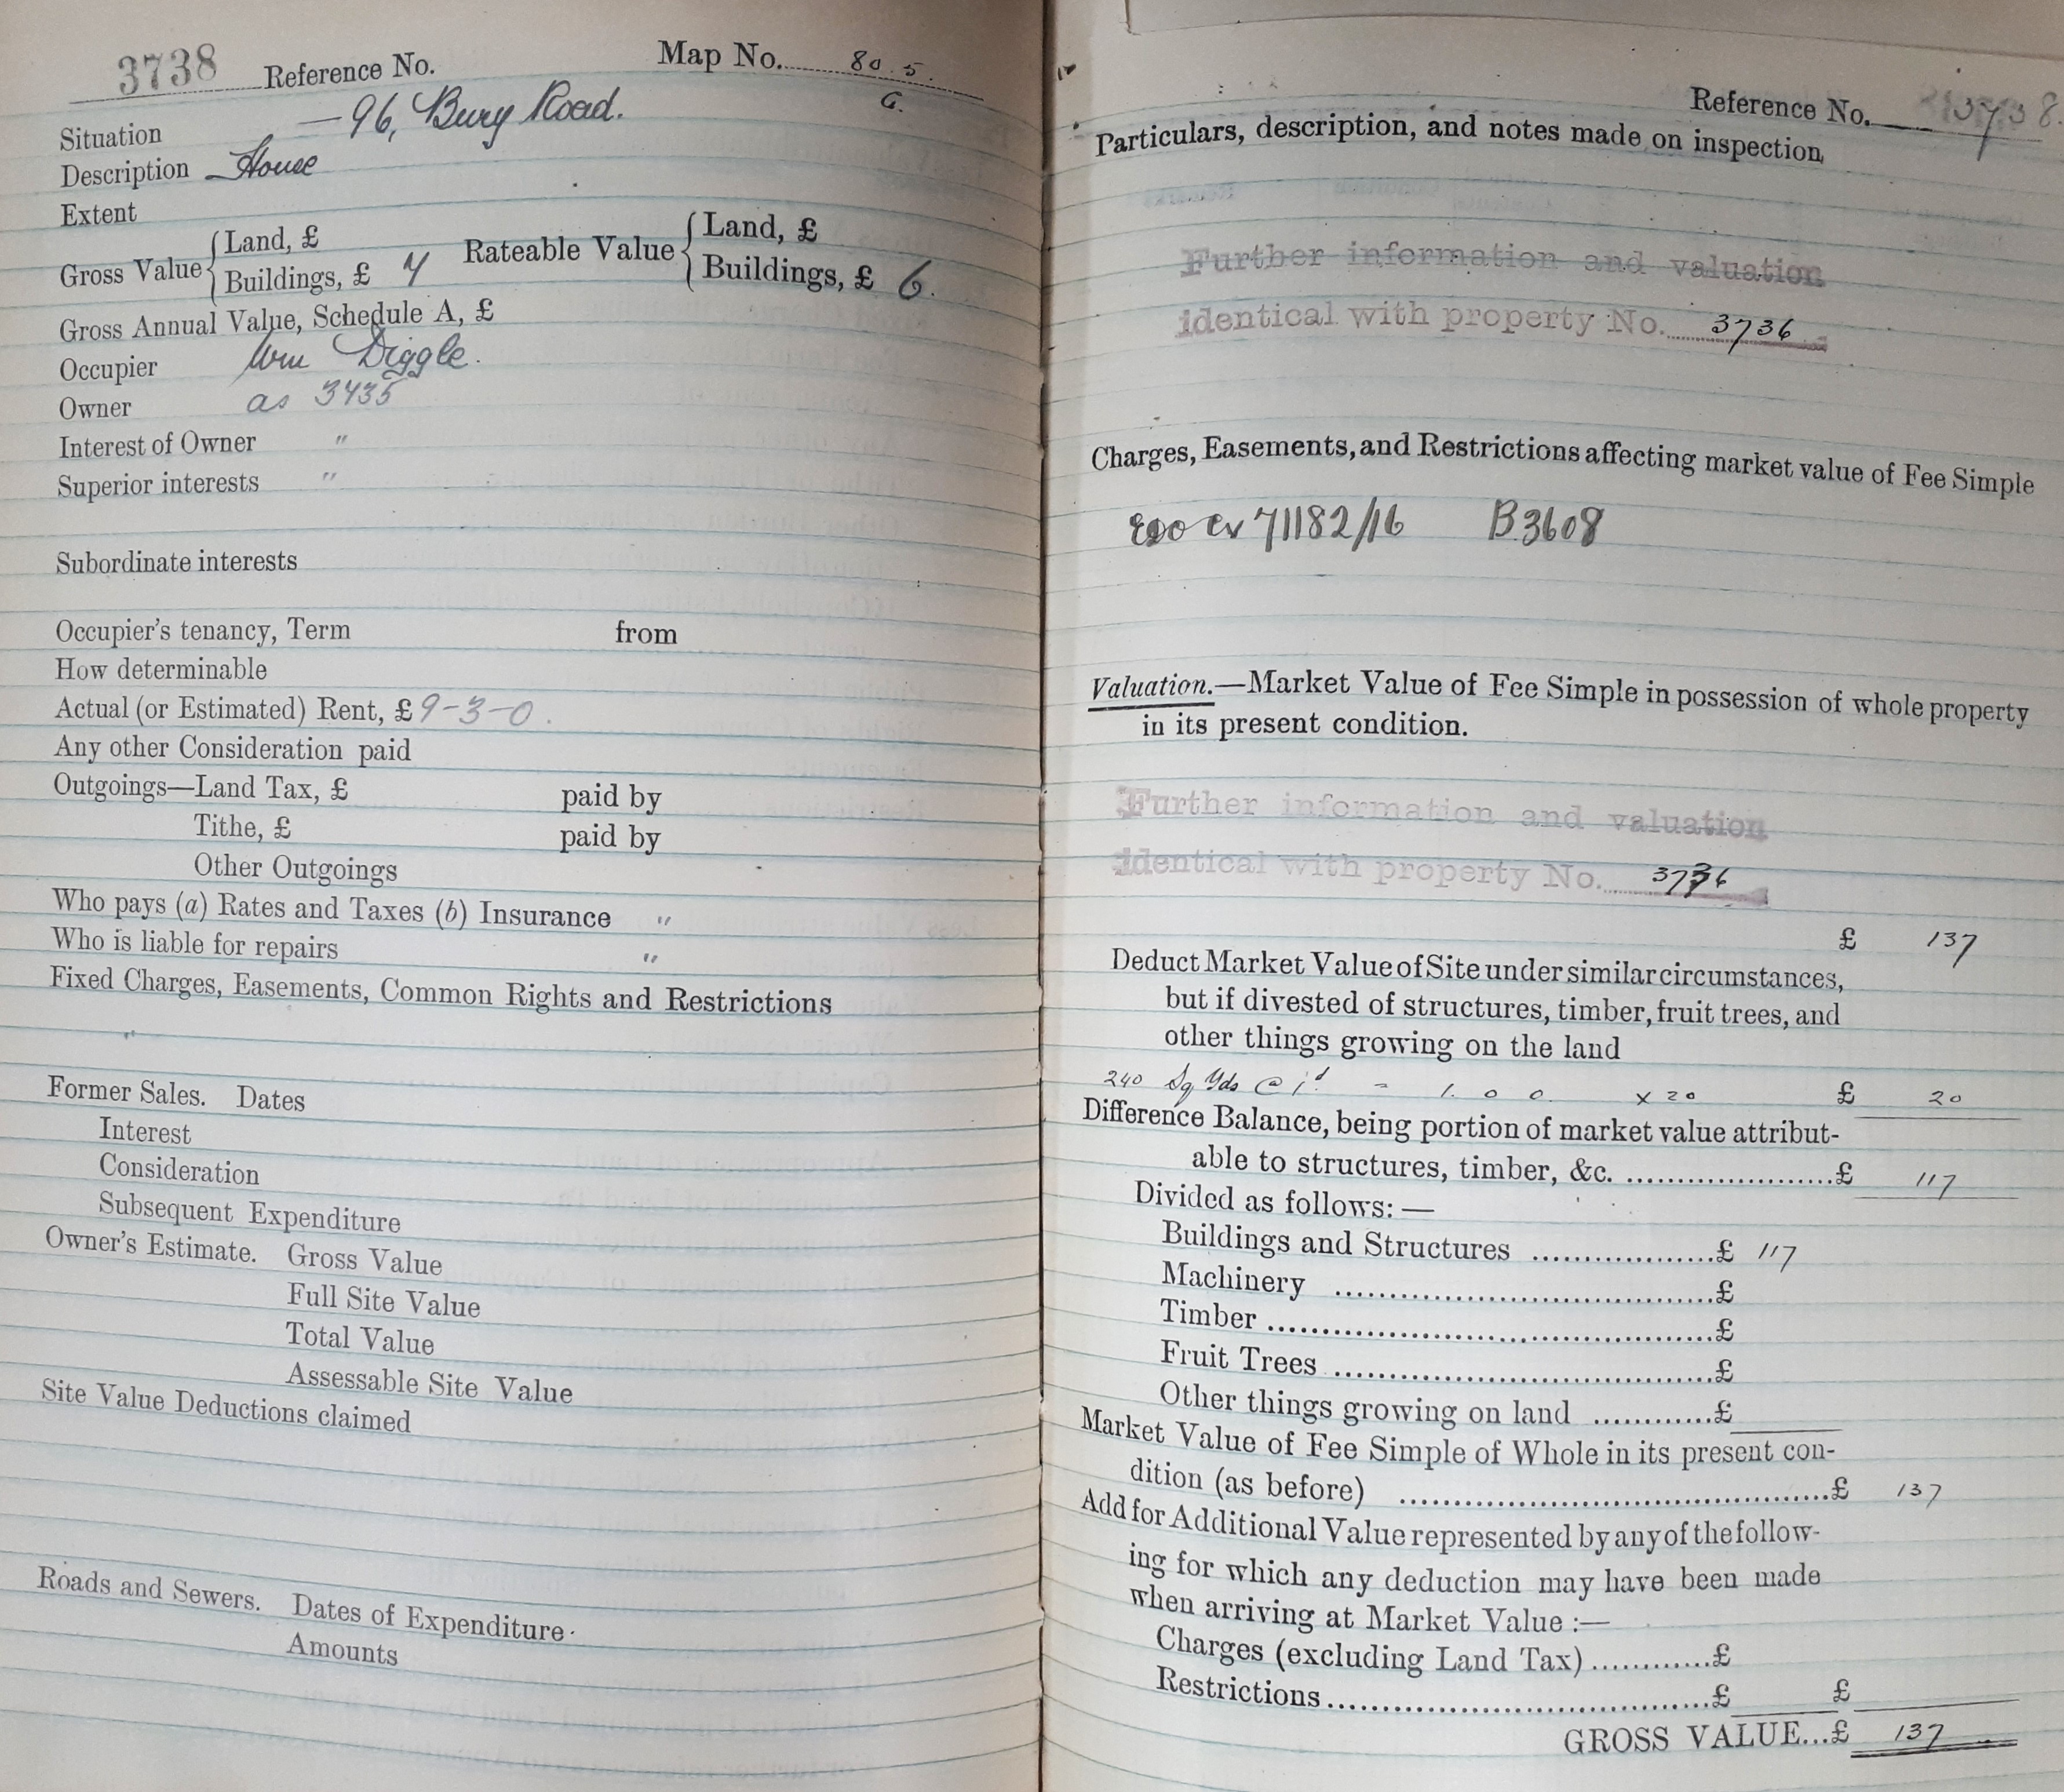 3738 Reference No. Map No. 80.5.
G.
Situation — 96, Bury Road.
Description House
Extent
Gross Value { Land, £
Buildings, £ 7
Rateable Value { Land, £
Buildings, £ 6.
Gross Annual Value, Schedule A, £
Occupier Wm Diggle.
Owner as 3435
Interest of Owner "
Superior interests "
Subordinate interests
Occupier's tenancy, Term from
How determinable
Actual (or Estimated) Rent, £ 9-3-0.
Any other Consideration paid
Outgoings—Land Tax, £ paid by
Tithe, £ paid by
Other Outgoings
Who pays (a) Rates and Taxes (b) Insurance "
Who is liable for repairs "
Fixed Charges, Easements, Common Rights and Restrictions
Former Sales. Dates
Interest
Consideration
Subsequent Expenditure
Owner's Estimate. Gross Value
Full Site Value
Total Value
Assessable Site Value
Site Value Deductions claimed
Roads and Sewers. Dates of Expenditure
Amounts
Reference No. 3738.
Particulars, description, and notes made on inspection
Further information and valuation
identical with property No. 3736
Charges, Easements, and Restrictions affecting market value of Fee Simple
71182/16 B.3608
Valuation.—Market Value of Fee Simple in possession of whole property
in its present condition.
Further information and valuation
identical with property No. 3736
£ 137
Deduct Market Value of Site under similar circumstances,
but if divested of structures, timber, fruit trees, and
other things growing on the land
240 Sq Yds @ 1d = 1. 0 0. x 20 £ 20
Difference Balance, being portion of market value attribut-
able to structures, timber, &c. ....................£ 117
Divided as follows:—
Buildings and Structures ..................£ 117
Machinery ......................................£
Timber ............................................£
Fruit Trees ......................................£
Other things growing on land ............£
Market Value of Fee Simple of Whole in its present con-
dition (as before) ...........................................£ 137
Add for Additional Value represented by any of the follow-
ing for which any deduction may have been made
when arriving at Market Value :—
Charges (excluding Land Tax)............£
Restrictions......................................£ £
GROSS VALUE...£ 137